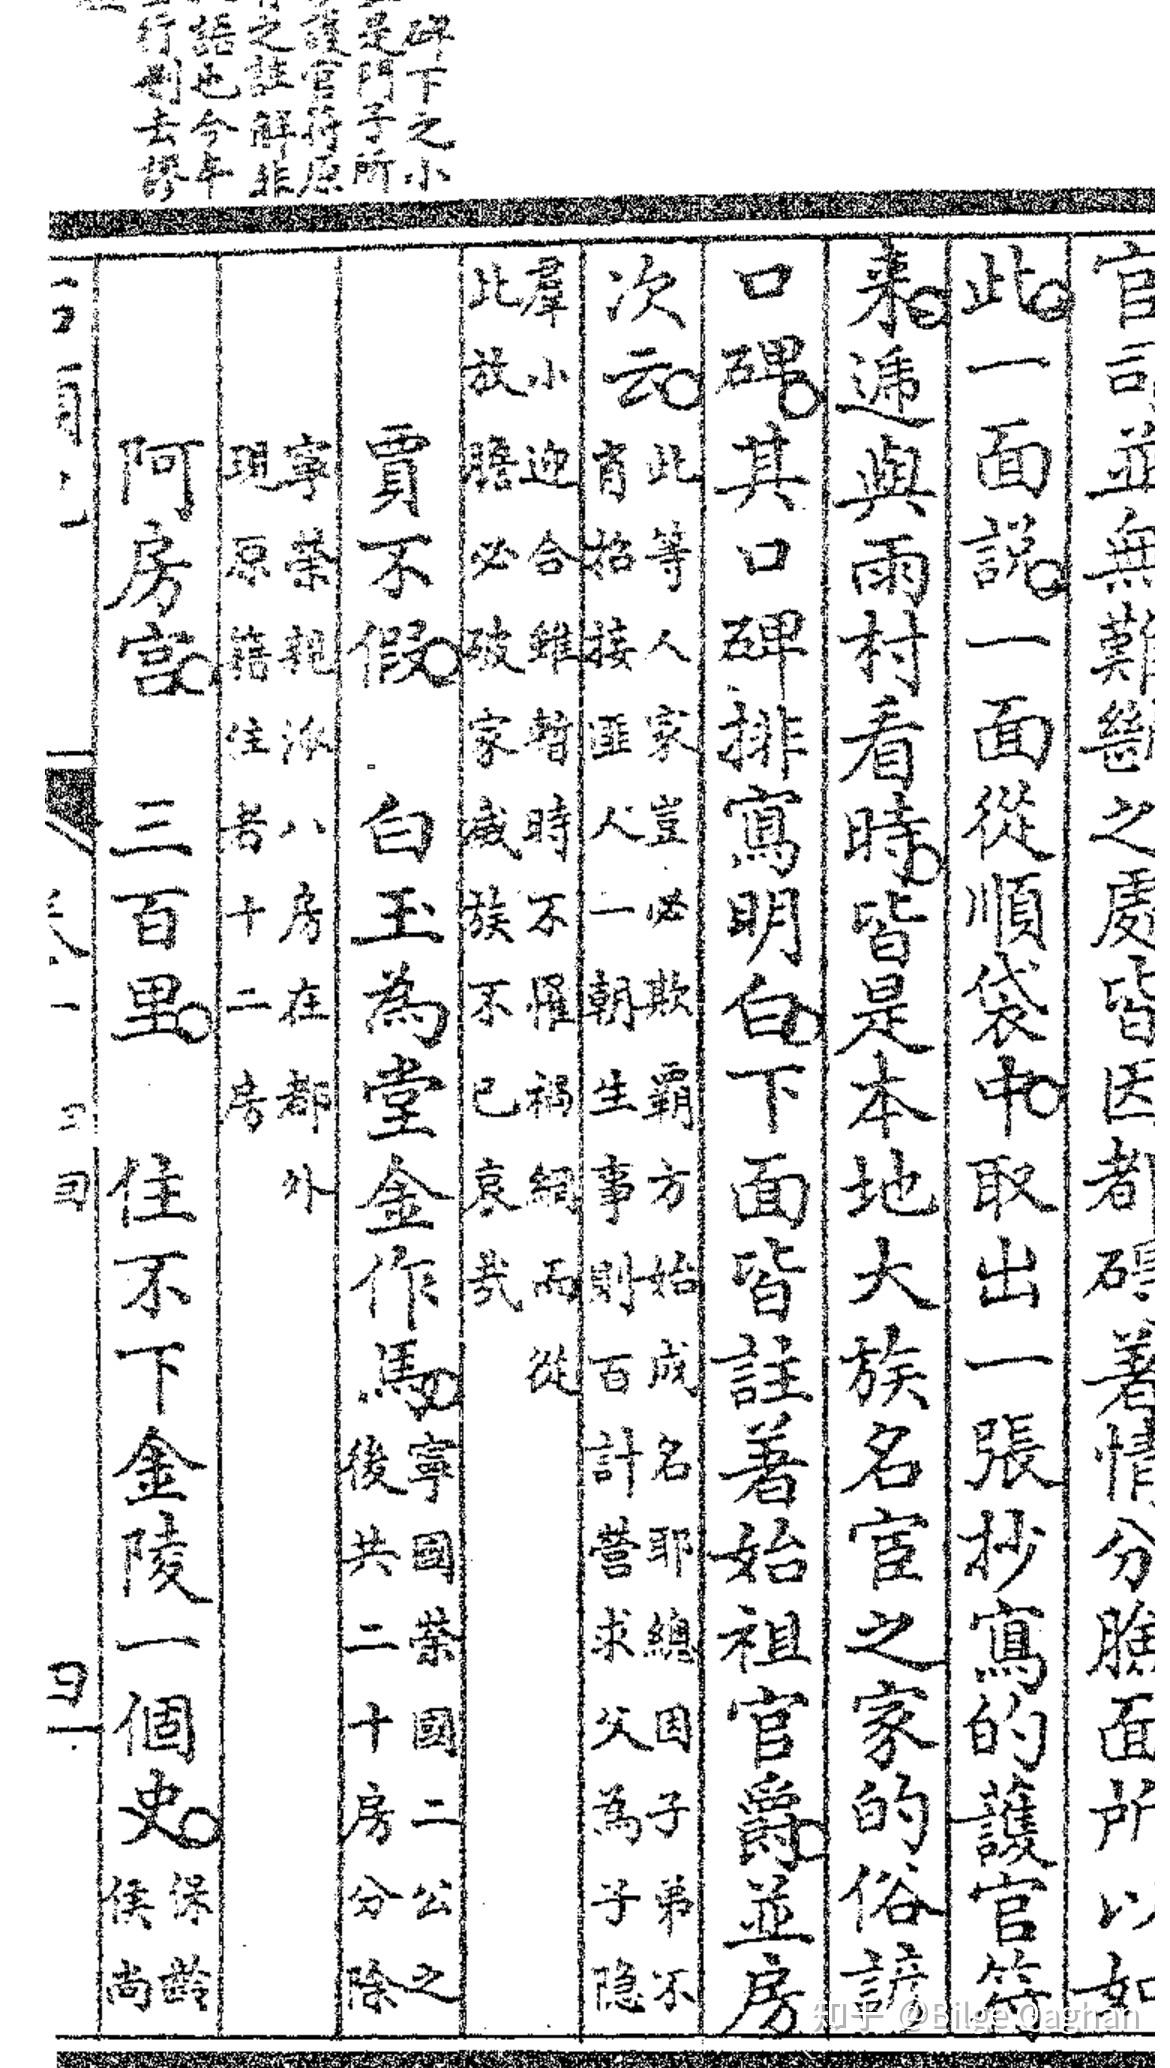 碑下之小
是門子所
護官符原
之註解非
語也今年
行刪去謬
官司並無難斷之處皆因都碍著情分臉面所以如
此一面說一面從順袋中取出一張抄寫的護官符
来遞與雨村看時皆是本地大族名宦之家的俗諺
口碑其口碑排寫明白下面皆註著始祖官爵並房
次云
此等人家豈必欺霸方始成名耶總因子弟不
肖招接匪人一朝生事則百計營求父為子隐
羣小迎合雖暫時不罹禍網而從
此放膽必破家滅族不已哀哉
賈不假 白玉為堂金作馬
寧國榮國二公之
後共二十房分除
寧榮親派八房在都外
現原籍住者十二房
阿房宮 三百里 住不下金陵一個史
保齡
侯尚
知乎 @Bilge Qaghan